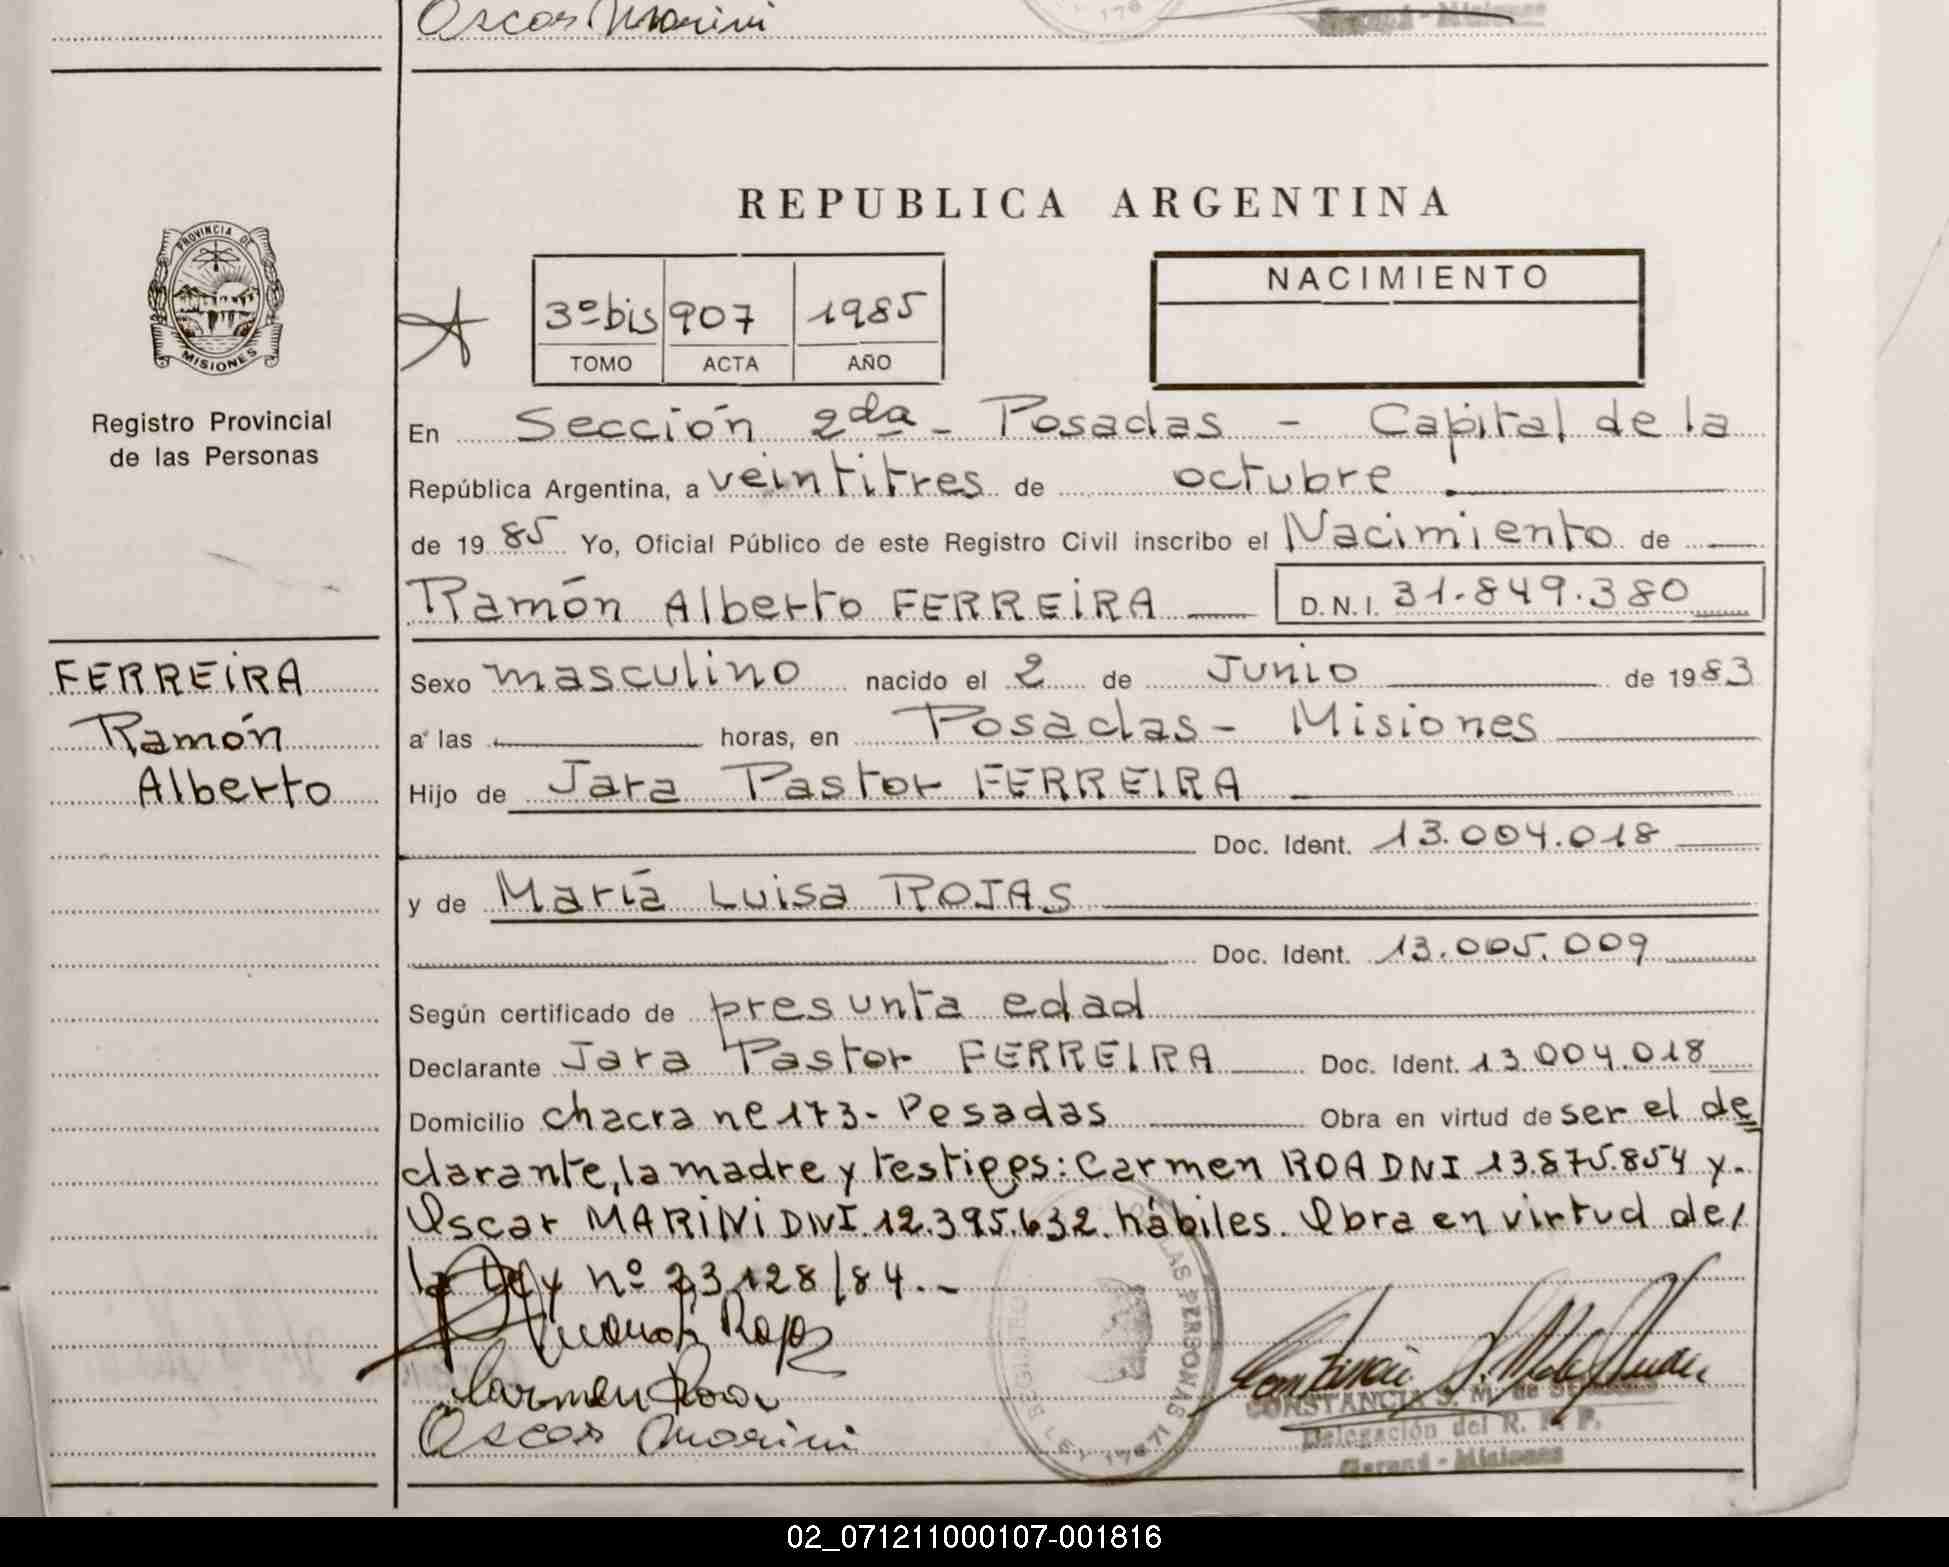 Oscar Marini
REPUBLICA ARGENTINA
PROVINCIA DE
MISIONES
Registro Provincial
de las Personas
3º bis 907 1985
TOMO ACTA AÑO
NACIMIENTO
En Sección 2da - Posadas - Capital de la
República Argentina, a veintitres de octubre
de 1985 Yo, Oficial Público de este Registro Civil inscribo el Nacimiento de
Ramón Alberto FERREIRA D.N.I. 31.849.380
FERREIRA
Ramón
Alberto
Sexo masculino nacido el 2 de Junio de 1983
a las horas, en Posadas - Misiones
Hijo de Jara Pastor FERREIRA
Doc. Ident. 13.004.018
y de María Luisa ROJAS
Doc. Ident. 13.005.009
Según certificado de presunta edad
Declarante Jara Pastor FERREIRA Doc. Ident. 13.004.018
Domicilio chacra nº 173 - Posadas Obra en virtud de ser el de
clarante, la madre y testigos: Carmen ROA DNI 13.875.854 y
Oscar MARINI DNI. 12.395.632. hábiles. Obra en virtud de
la Ley nº 23.128/84.-
Rojas
Carmen Roa
Oscar Marini
REGISTRO
LAS PERSONAS
LEY 17671
CONSTANCIA S. M. de
Delegación del R. P. P.
Misiones
02_071211000107-001816